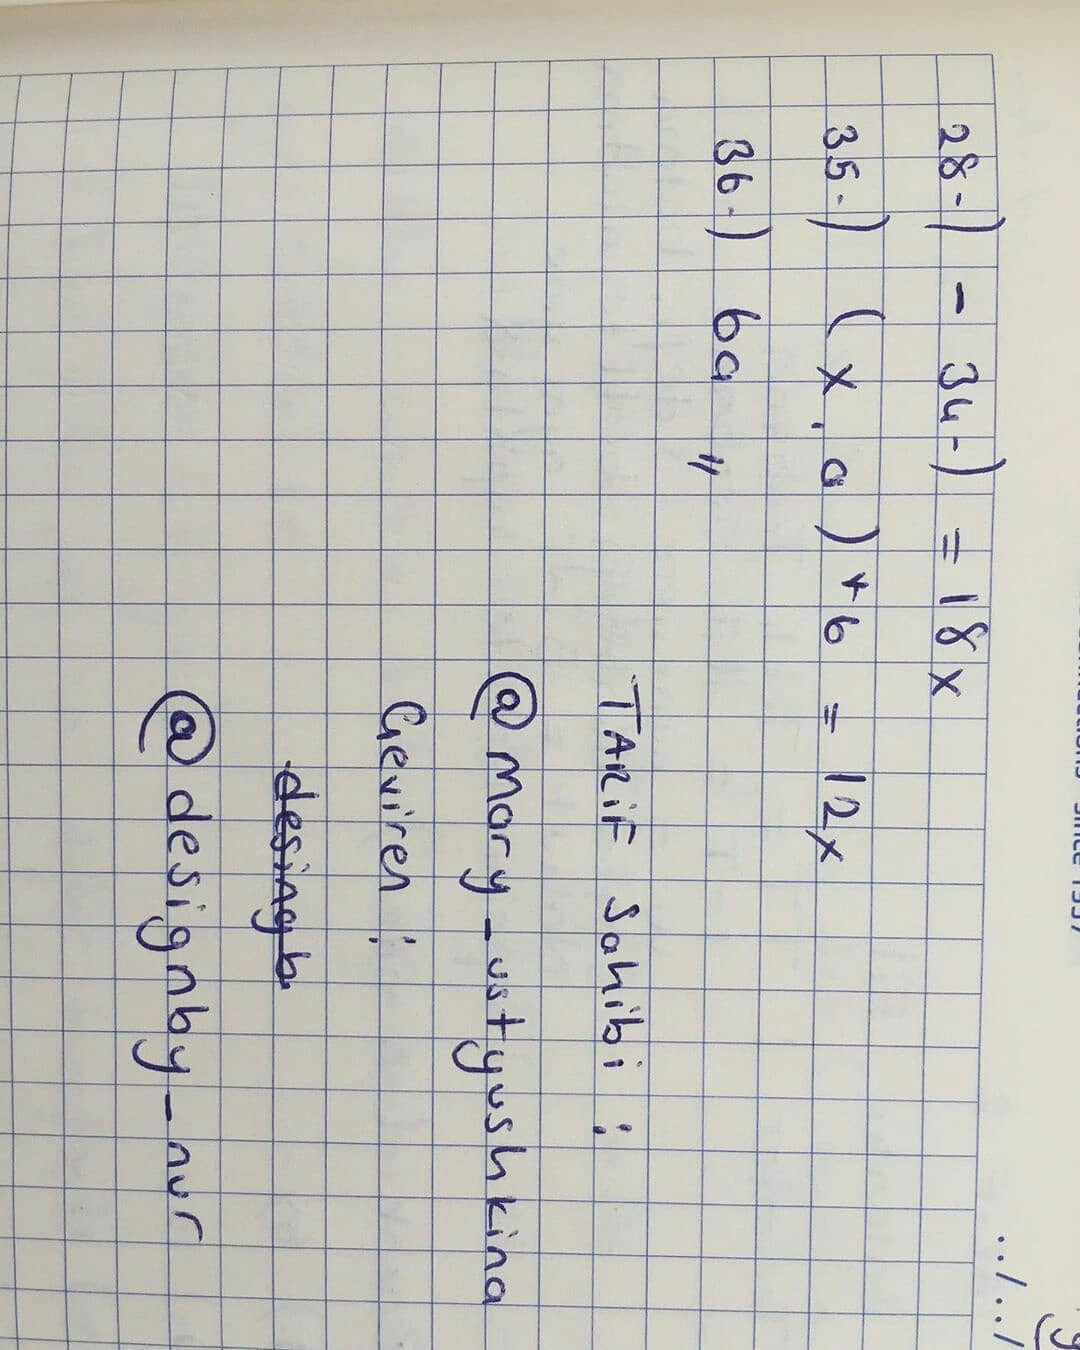 28-) - 34-) = 18x
35-) (x, a) * 6 = 12x
36-) 6a "
TARİF Sahibi :
@mary_ustyushkina
Çeviren :
desingb
@designby_nur
../../